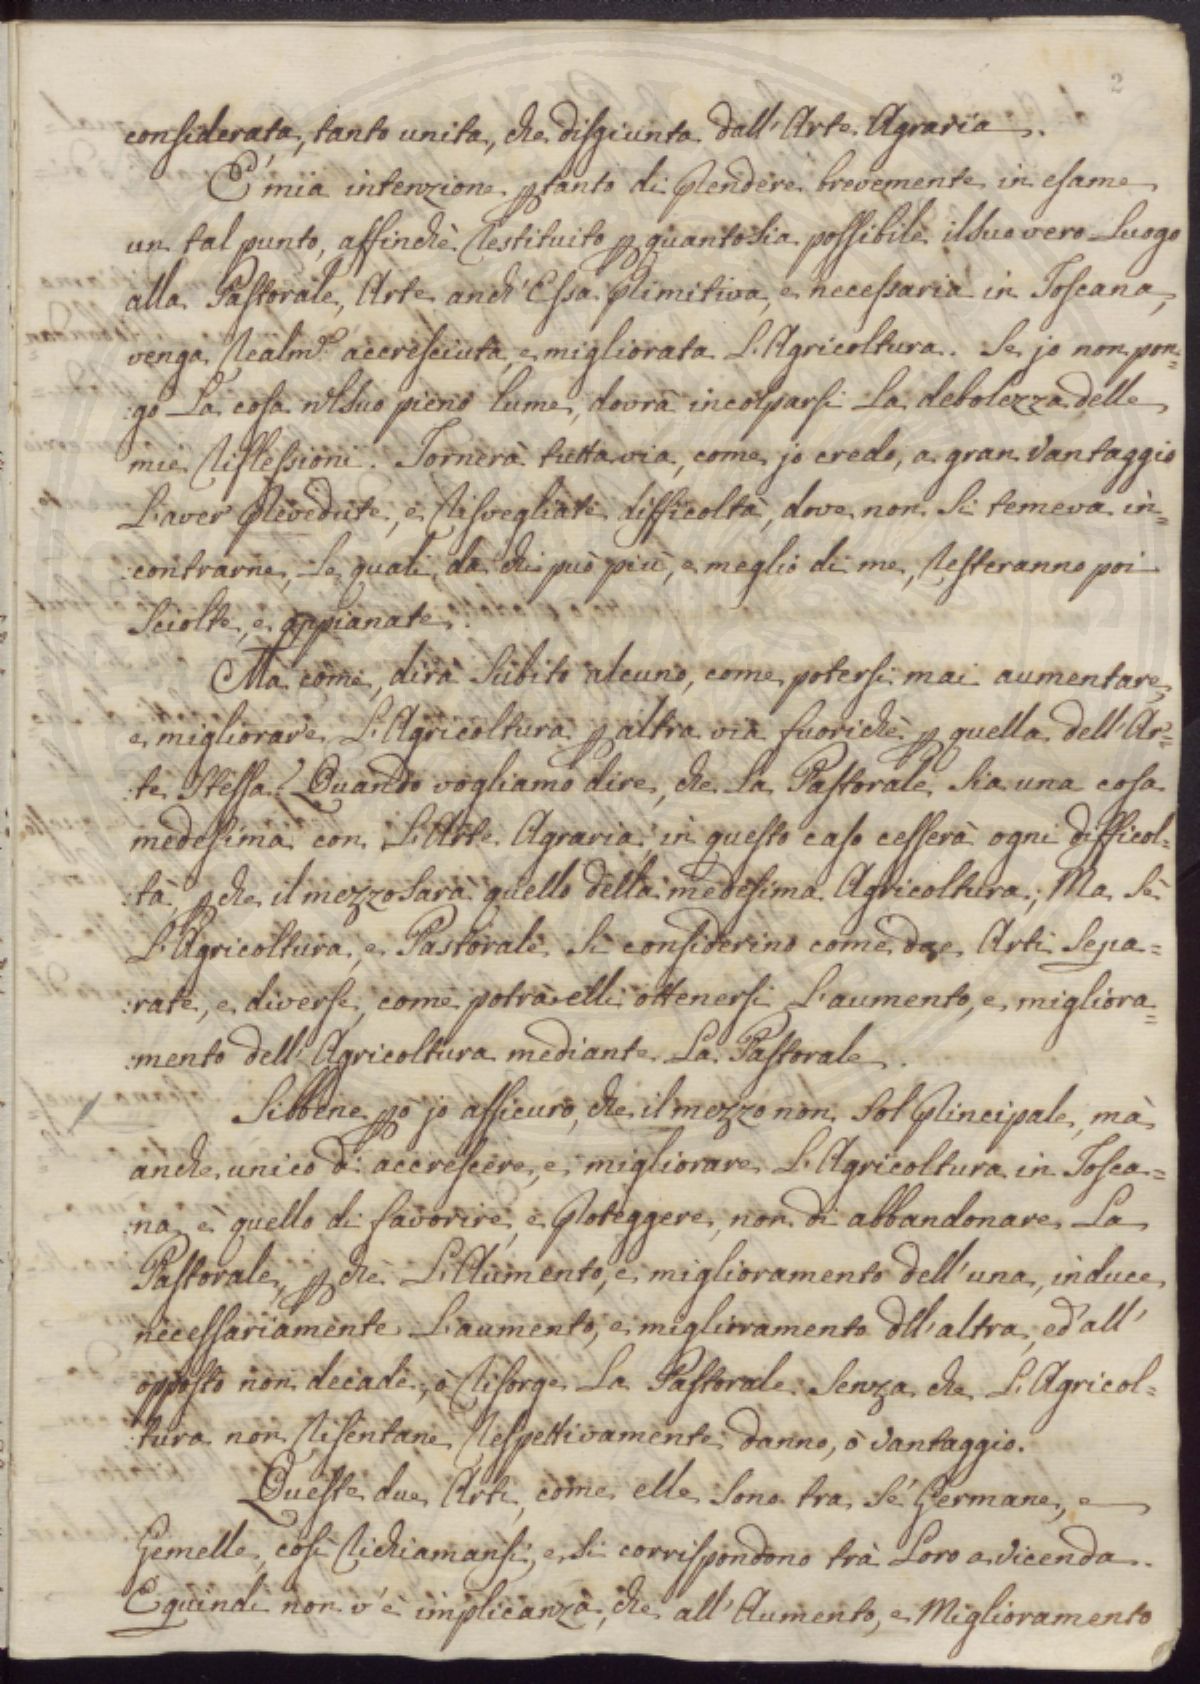 2
considerata, tanto unita, che disgiunta dall'Arte Agraria.
E' mia intenzione ptanto di Prendere brevemente in esame
un tal punto, affinchè Restituito p quanto sia possibile il suo vero Luogo
alla Pastorale, Arte anch'Essa Primitiva, e necessaria in Toscana,
venga Realmte accresciuta, e migliorata L'Agricoltura. Se jo non pon=
:go La cosa nel suo pieno lume, dovrà incolparsi La debolezza delle
mie Riflessioni. Tornerà tuttavia, come jo credo, a gran Vantaggio
L'aver Prevedute, e Risvegliate difficoltà, dove non Si temeva in=
:contrarne, Le quali, da chi può più, e meglio di me, Resteranno poi
Sciolte, e appianate.
Ma come, dirà Subito alcuno, come potersi mai aumentare,
e migliorare L'Agricoltura p altra via fuorichè p quella dell'Ar=
:te Stessa? Quando vogliamo dire, che La Pastorale Sia una cosa
medesima con L'Arte Agraria in questo caso cesserà ogni difficol=
:tà, pche il mezzo sarà quello della medesima Agricoltura; Ma Se
L'Agricoltura, e Pastorale Si considerino come due Arti Sepa=
:rate, e diverse, come potrà elli ottenersi L'aumento, e migliora=
:mento dell'Agricoltura mediante La Pastorale.
Sibbene pò jo assicuro, che il mezzo non Sol Principale, mà
anche unico di accrescere, e migliorare L'Agricoltura in Tosca=
:na, e quello di favorire, e Proteggere, non di abbandonare La
Pastorale, p chè L'Aumento, e miglioramento dell'una, induce
necessariamente L'aumento, e miglioramento dll'altra, ed'all'
opposto non decade, ò Risorge La Pastorale Senza che L'Agricol=
:tura non Risentane Respettivamente danno, ò Vantaggio.
Queste due Arti, come elle Sono tra Sé Germane, e
Gemelle, così Richiamansi, e Si corrispondono trà Loro a vicenda.
E quindi non v'è implicanza, che all'Aumento, e Miglioramento